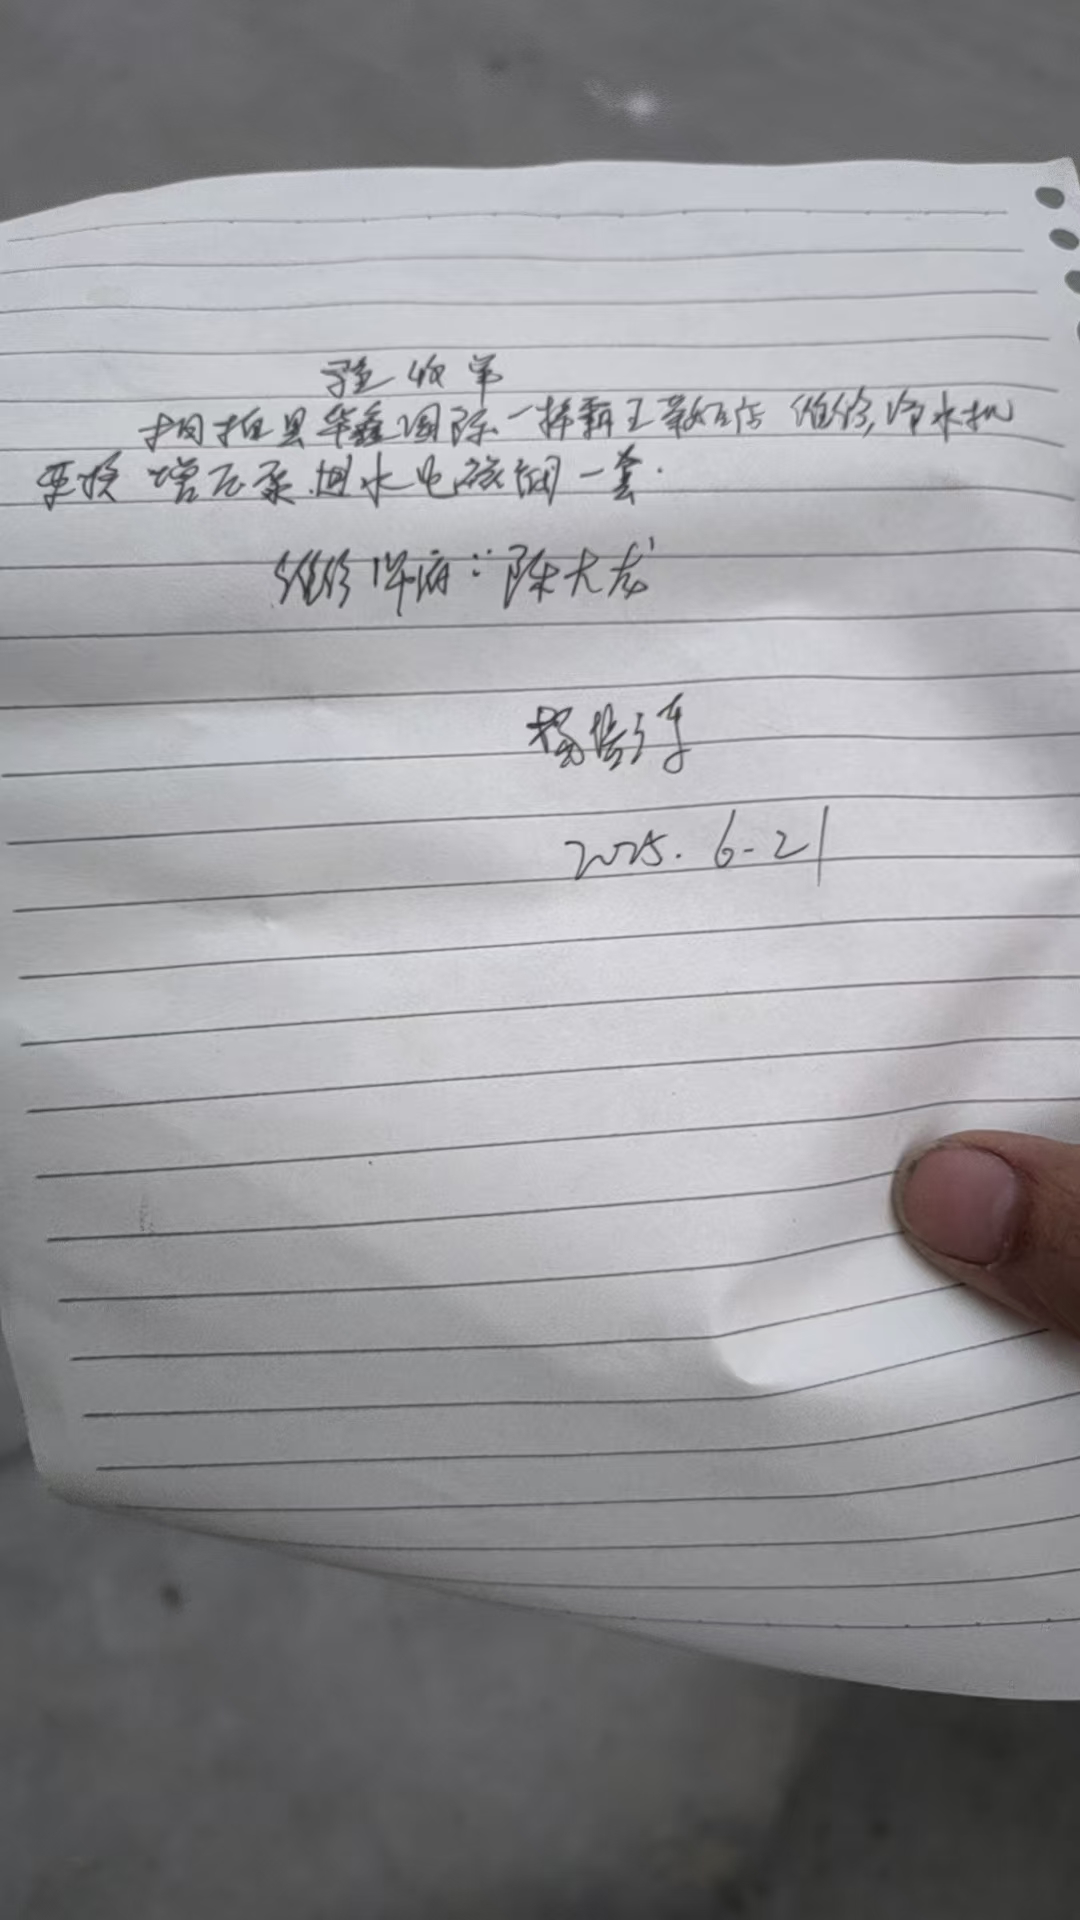 验收单
桐柏县华鑫国际一择霸王茶姬店 维修,净水机
更换 增压泵.进水电磁阀一套.
维修师傅:陈大龙
2025.6-21